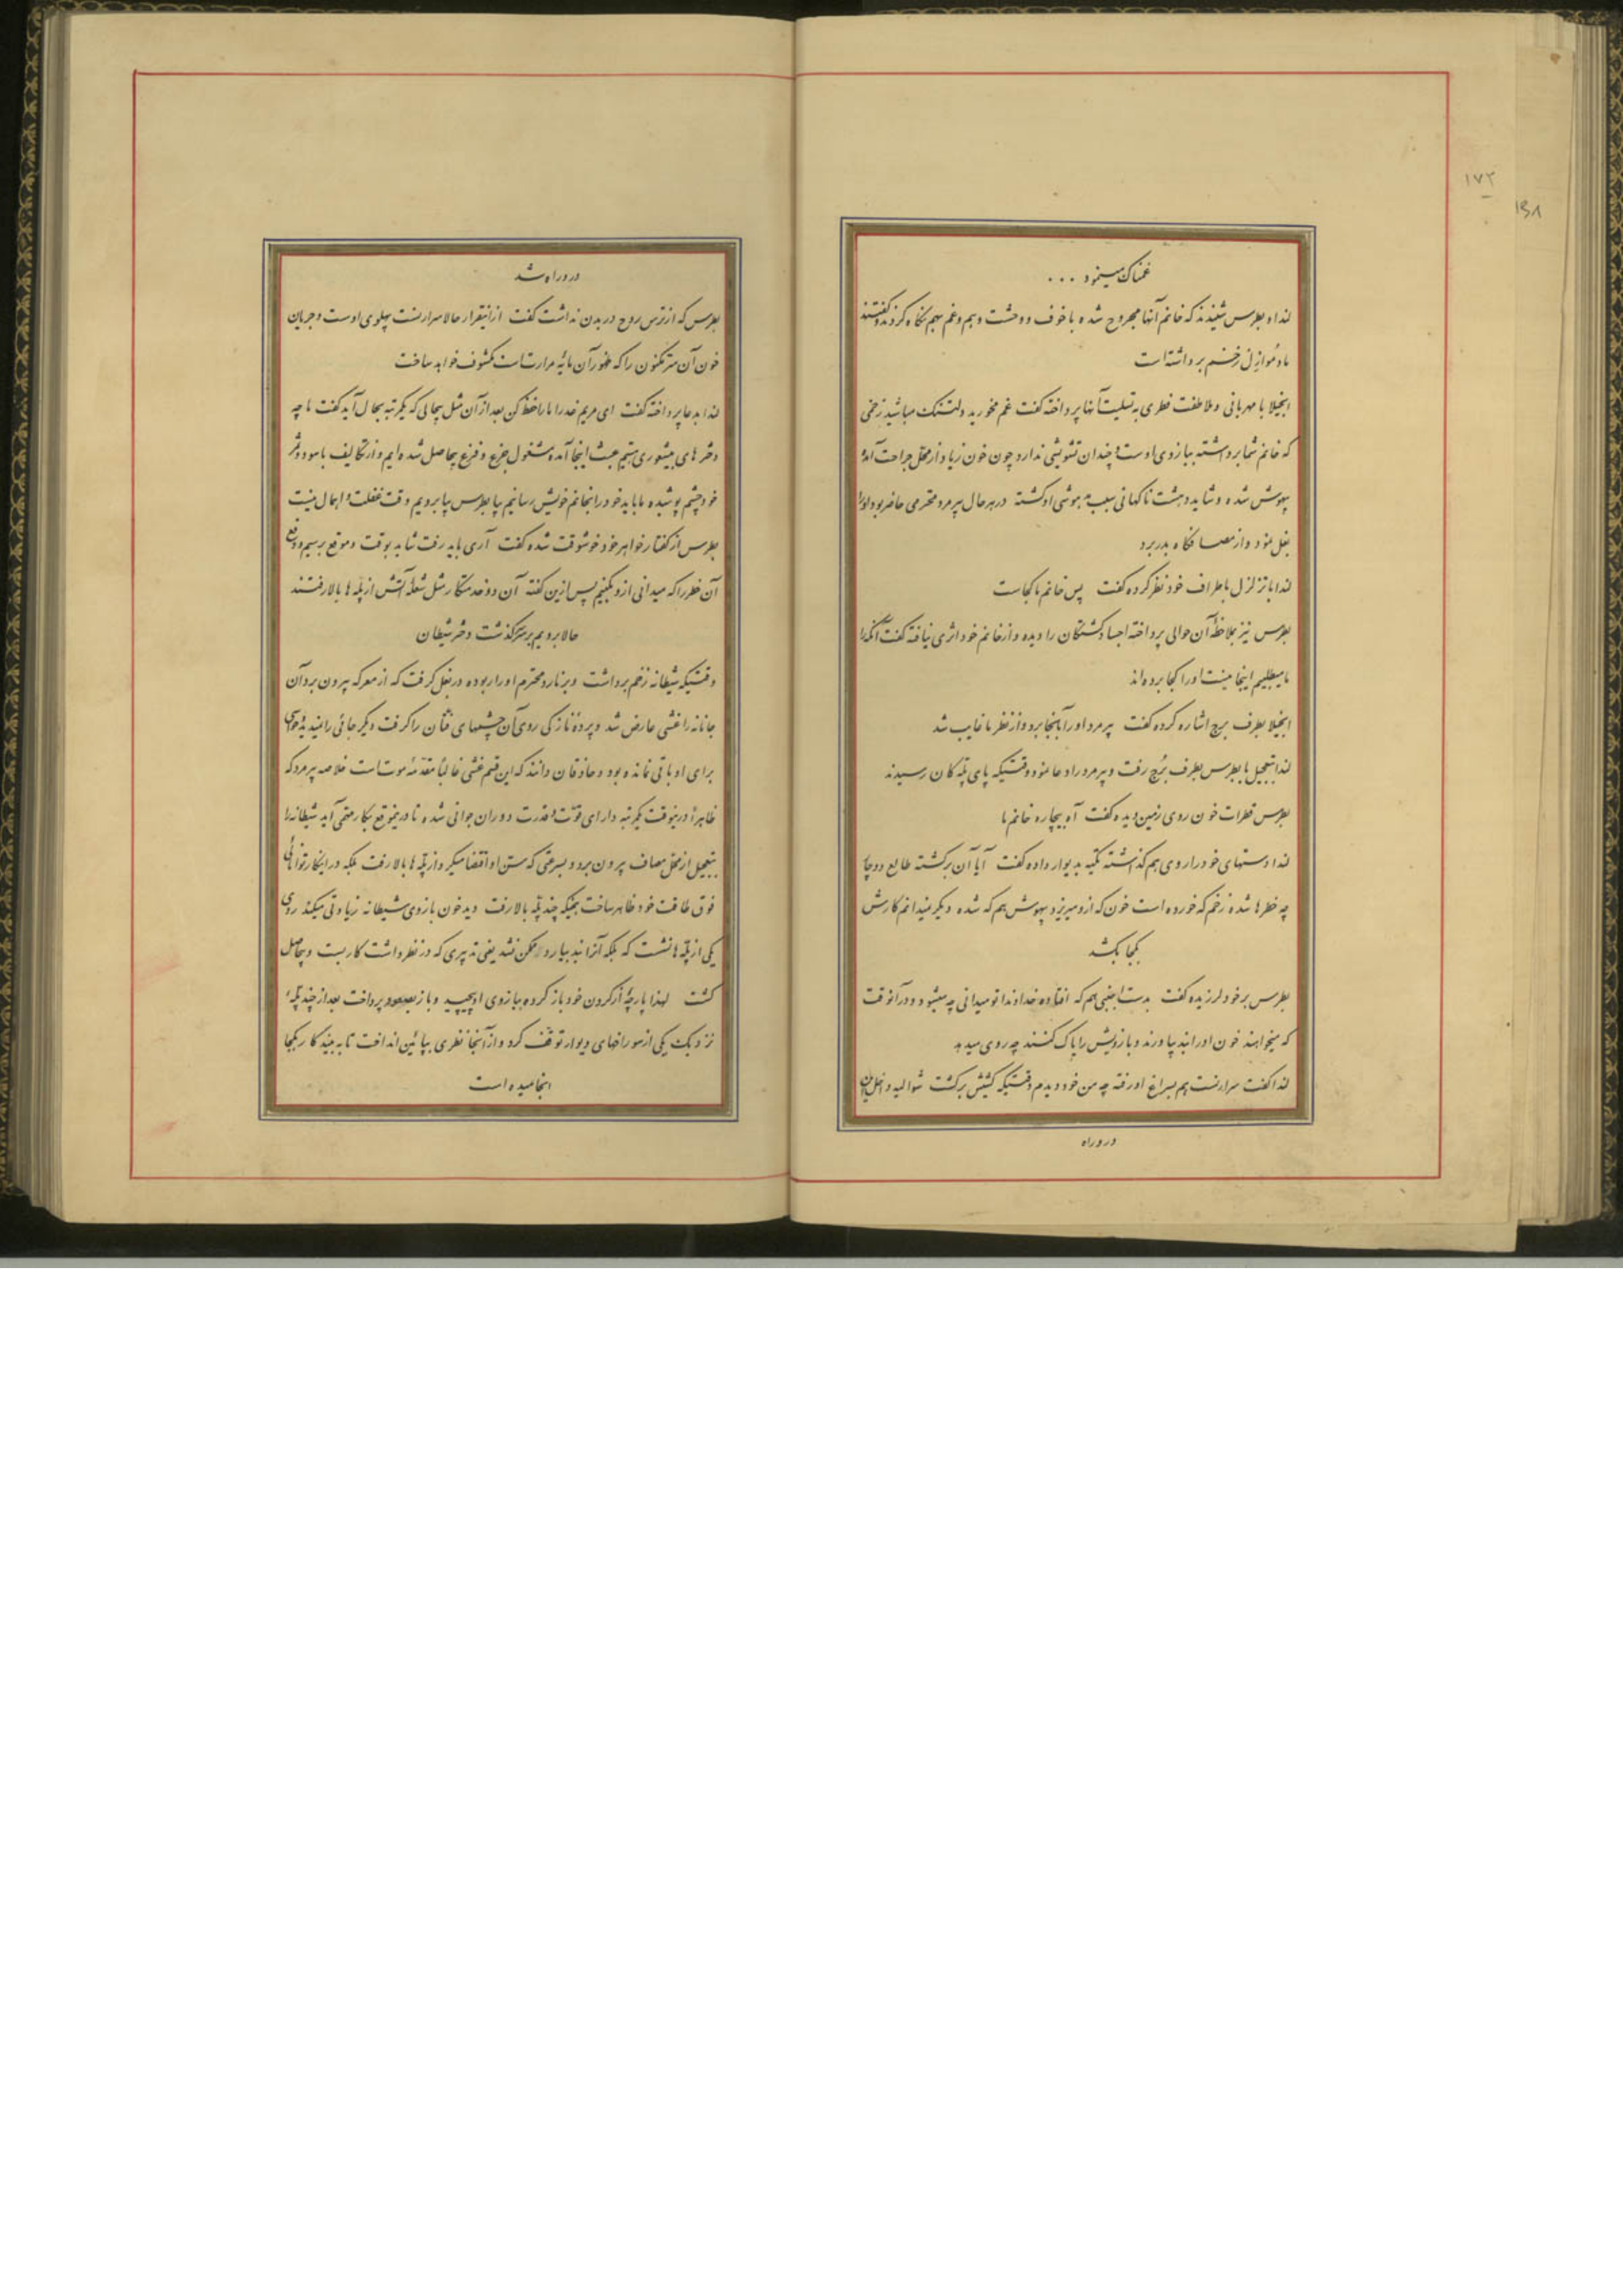 ۱۷۲
۱۵۸
غمناک مینمود ...
لندا و بطرس شنیدند که خانم آنها مجروح شده با خوف و وحشت و بیم و غم بهم نگاه کردند و گفتند
مادموازل زخم برداشته است
انجیلا با مهربانی و ملاطفت فطری به تسلیت آنها پرداخته گفت غم مخورید و دلتنک مباشید زخمی
که خانم شما برداشته ببازوی اوست و چندان تشویشی ندارد چون خون زیاد از محل جراحت آمده
بیهوش شده و شاید دهشت ناگهانی سبب بیهوشی او گشته در هر حال پیرمرد محترمی حاضر بود او را
بغل نمود و از مصافگاه بدر برد
لندا با تزلزل باطراف خود نظر کرده گفت پس خانم ما کجاست
بطرس نیز بملاحظهٔ آن حوالی پرداخته اجساد کشتگان را دیده و از خانم خود اثری نیافته گفت آنکه را
ما میطلبیم اینجا نیست او را کجا برده‌اند
انجیلا بطرف برج اشاره کرده گفت پیرمرد او را بآنجا برد و از نظر ما غایب شد
لندا بتعجیل با بطرس بطرف برج رفت و پیرمرد را دعا نمود و وقتیکه پای پله‌کان رسیدند
بطرس قطرات خون روی زمین دیده گفت آه بیچاره خانم ما
لندا دستهای خود را روی هم گذاشته تکیه بدیوار داده گفت آیا آن برگشته طالع دوچار
چه خطرها شده زخم که خورده است خون که ازو میریزد بیهوش هم که شده دیگر نمیدانم کارش
بکجا بکشد
بطرس برخود لرزیده گفت بدست اجنبی هم که افتاده خداوندا تو میدانی چه میشود و در آنوقت
که میخواهند خون او را بند بیاورند و بازویش را پاک کنند چه روی میدهد
لندا گفت سرارنست هم بسراغ او رفته چه من خود دیدم وقتیکه کشیش برگشت شوالیه داخل این
در و راه
در و راه شد
بطرس که از ترس روح در بدن نداشت گفت ازاینقرار حالا سرارنست پهلوی اوست و جریان
خون آن سر مکنون را که ظهور آن مایهٔ مرارت است مکشوف خواهد ساخت
لندا بدعا پرداخته گفت ای مریم عذرا ما را حفظ کن بعد از آن مثل بیحالی که یکمرتبه بحال آید گفت ما چه
دختر‌های بیشعوری هستیم عبث اینجا آمده مشغول جزع و فزع بیحاصل شده‌ایم و از تکالیف با سود و ثمر
خود چشم پوشیده ما باید خود را بخانم خویش برسانیم بیا بطرس بیا برویم وقت غفلت و اهمال نیست
بطرس از گفتار خواهر خود خوشوقت شده گفت آری باید رفت شاید بوقت و موقع برسیم و دفع
آن خطر را که میدانی ازو بکنیم پس ازین گفته آن دو خدمتکار مثل شعلهٔ آتش از پله‌ها بالا رفتند
حالا برویم بر سرگذشت دختر شیطان
وقتیکه شیطانه زخم برداشت و برنارد محترم او را ربوده در بغل گرفت که از معرکه بیرون برد آن
جانانه را غشی عارض شد و پردهٔ نازکی روی آن چشمهای فتان را گرفت دیگر جائی را نمیدید حواسی
برای او باقی نمانده بود و حاذقان دانند که این قسم غشی غالباً مقدمهٔ موت است خلاصه پیرمرد که
ظاهراً درینوقت یکمرتبه دارای قوت و قدرت دوران جوانی شده تا درینموقع بکار محتمی آید شیطانه را
بتعجیل از محل مصاف بیرون برد و بسرعتی که سن او اقتضا میکرد از پله‌ها بالا رفت بلکه در اینکار توانائی
فوق طاقت خود ظاهر ساخت بجنکه چند پله بالا رفت دید خون بازوی شیطانه زیادتی میکند روی
یکی از پله‌ها نشست که بلکه آنرا بند بیارد ممکن نشد یعنی تدبیری که در نظر داشت کار نبست و بیحاصل
گشت لهذا پارچهٔ از گردن خود باز کرده ببازوی او پیچید و باز بصعود پرداخت بعد از چند پله
نزدیک یکی از سوراخهای دیوار توقف کرد و از آنجا نظری بپائین انداخت تا به بیند کار بکجا
انجامیده است